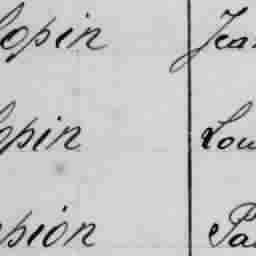 opin Jea
pin Lou
pion Pa